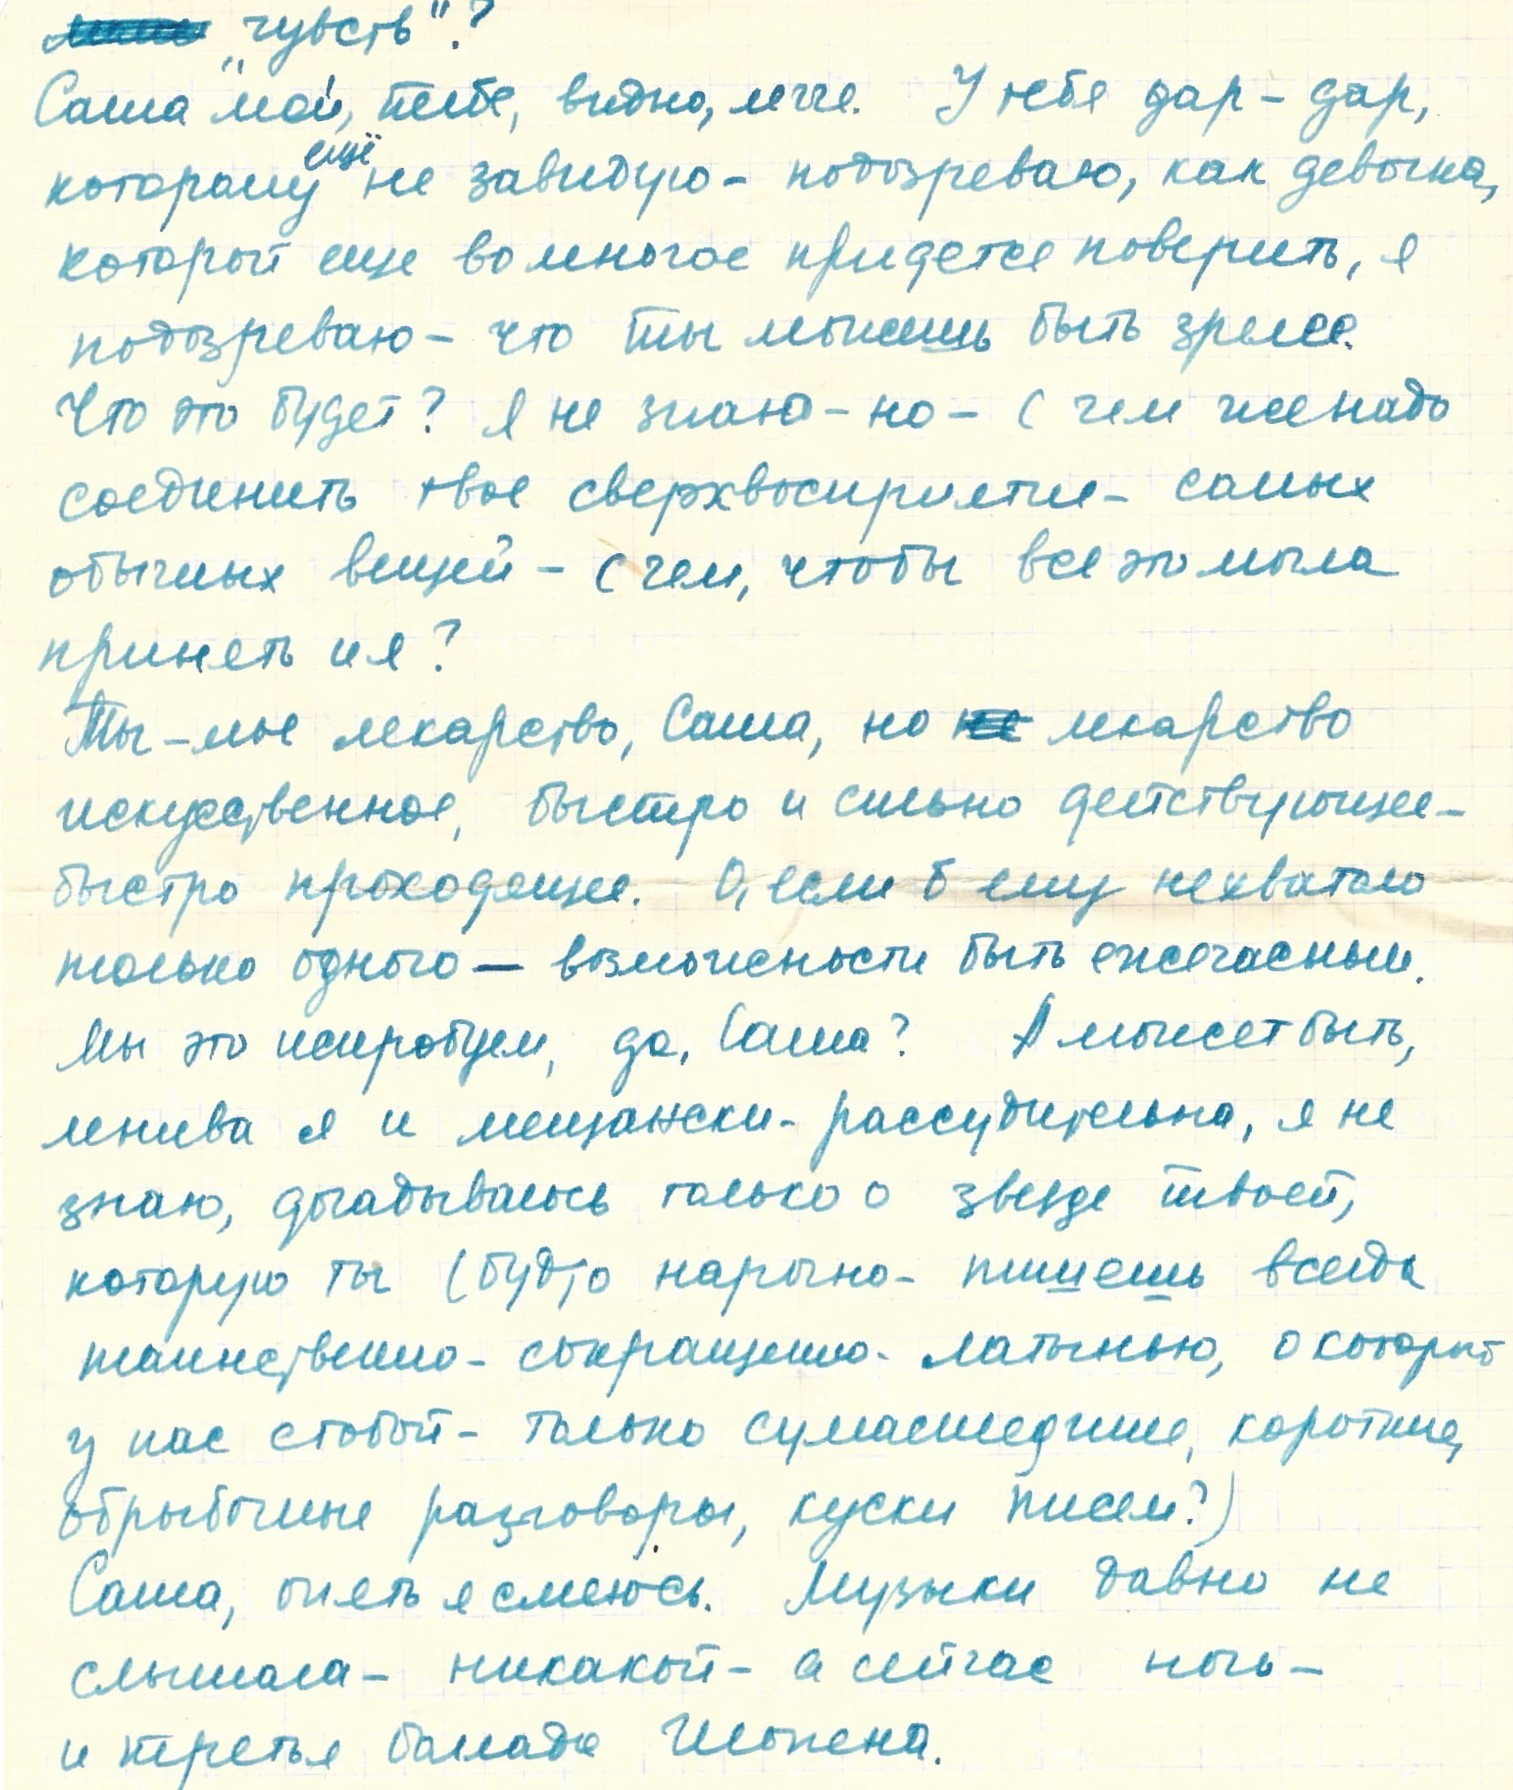 „чувств"?
Саша мой, тебе, видно, легче. У тебя дар – дар,
которому ещё не завидую – подозреваю, как девочка,
которой еще во многое придется поверить, я
подозреваю – что ты можешь быть зрелее.
Что это будет? Я не знаю – но – с чем же надо
соединить твое сверхвосприятие – самых
обычных вещей – с чем, чтобы все это могла
принять и я?
Ты – мое лекарство, Саша, но лекарство
искусственное, быстро и сильно действующее –
быстро проходящее. О, если б ему нехватало
только одного — возможности быть ежечасным.
Мы это испробуем, да, Саша? А может быть,
ленива я и мещански-рассудительна, я не
знаю, догадываюсь только о звезде твоей,
которую ты (будто нарочно – пишешь всегда
таинственно – сокращенно – латынью, о которой
у нас с тобой – только сумасшедшие, короткие,
обрывочные разговоры, куски писем?)
Саша, опять я смеюсь. Музыки давно не
слышала – никакой – а сейчас ночь –
и третья баллада Шопена.